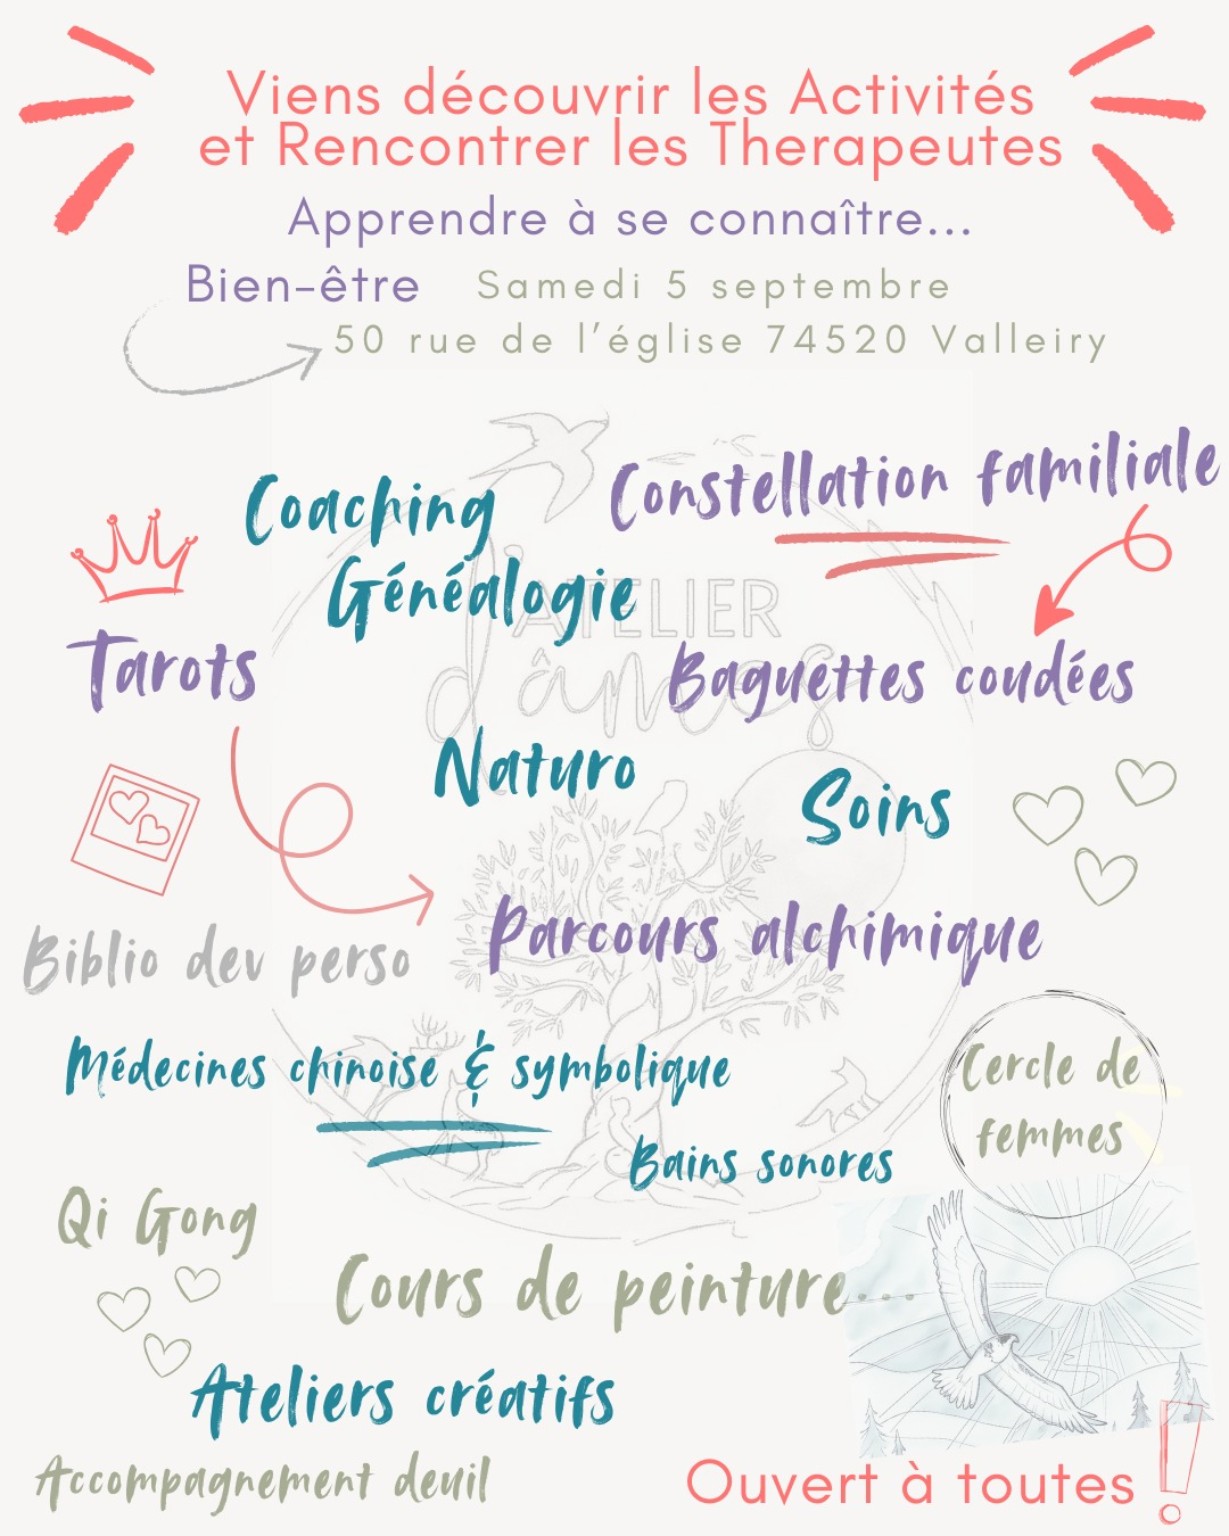 Viens découvrir les Activités
et Rencontrer les Therapeutes
Apprendre à se connaître...
Bien-être
Samedi 5 septembre
50 rue de l'église 74520 Valleiry
Coaching
Constellation familiale
Généalogie
L'ATELIER
d'âmes
Tarots
Baguettes coudées
Naturo
Soins
Parcours alchimique
Biblio dev perso
Médecines chinoise & symbolique
Cercle de
femmes
Bains sonores
Qi Gong
Cours de peinture....
Ateliers créatifs
Accompagnement deuil
Ouvert à toutes !